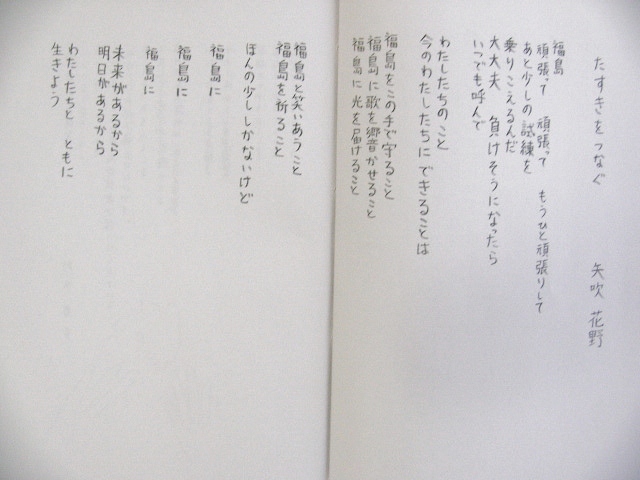 たすきをつなぐ
矢吹 花野
福島
頑張って 頑張って もうひと頑張りして
あと少しの試練を
乗りこえるんだ
大丈夫 負けそうになったら
いつでも呼んで
わたしたちのこと
今のわたしたちにできることは
福島をこの手で守ること
福島に歌を響かせること
福島に光を届けること
福島と笑いあうこと
福島を祈ること
ほんの少ししかないけど
福島に
福島に
福島に
未来があるから
明日があるから
わたしたちと ともに
生きよう